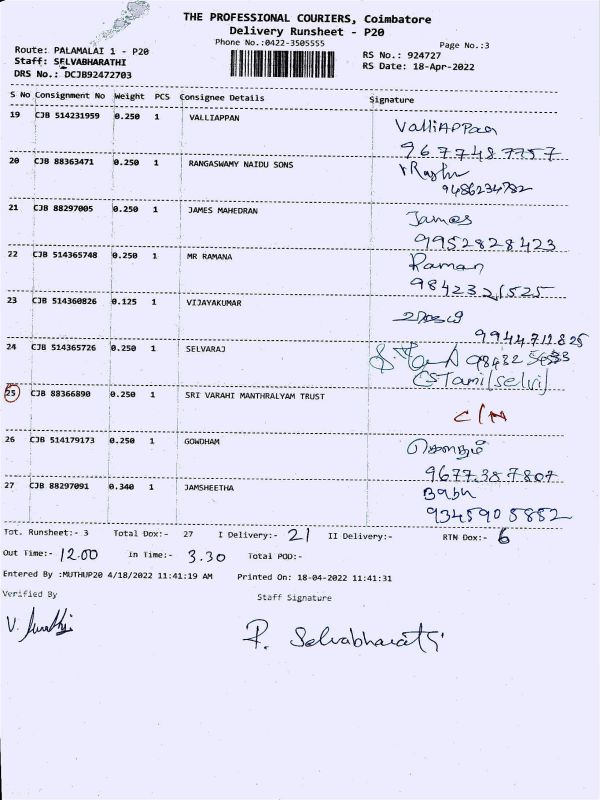 THE PROFESSIONAL COURIERS, Coimbatore
Delivery Runsheet - P20
Phone No.:0422-3505555
Page No.:3
Route: PALAMALAI 1 - P20
RS No.: 924727
Staff: SELVABHARATHI
RS Date: 18-Apr-2022
DRS No.: DCJB92472703
S No Consignment No Weight PCS Consignee Details Signature
19 CJB 514231959 0.250 1 VALLIAPPAN ValliAPPan
9677487757
20 CJB 88363471 0.250 1 RANGASWAMY NAIDU SONS
9486234782
21 CJB 88297005 0.250 1 JAMES MAHEDRAN James
9952828423
22 CJB 514365748 0.250 1 MR RAMANA Raman
9842321525
23 CJB 514360826 0.125 1 VIJAYAKUMAR
9944711825
24 CJB 514365726 0.250 1 SELVARAJ
CSTamilselvi
25 CJB 88366890 0.250 1 SRI VARAHI MANTHRALYAM TRUST
26 CJB 514179173 0.250 1 GOWDHAM கௌதம்
9677387807
27 CJB 88297091 0.340 1 JAMSHEETHA Babu
9345905882
Tot. Runsheet:- 3 Total Dox:- 27 I Delivery:- 21 II Delivery:- RTN Dox:- 6
Out Time:- 12.00 In Time:- 3.30 Total POD:-
Entered By :MUTHUP20 4/18/2022 11:41:19 AM Printed On: 18-04-2022 11:41:31
Verified By Staff Signature
P. Selvabharathi